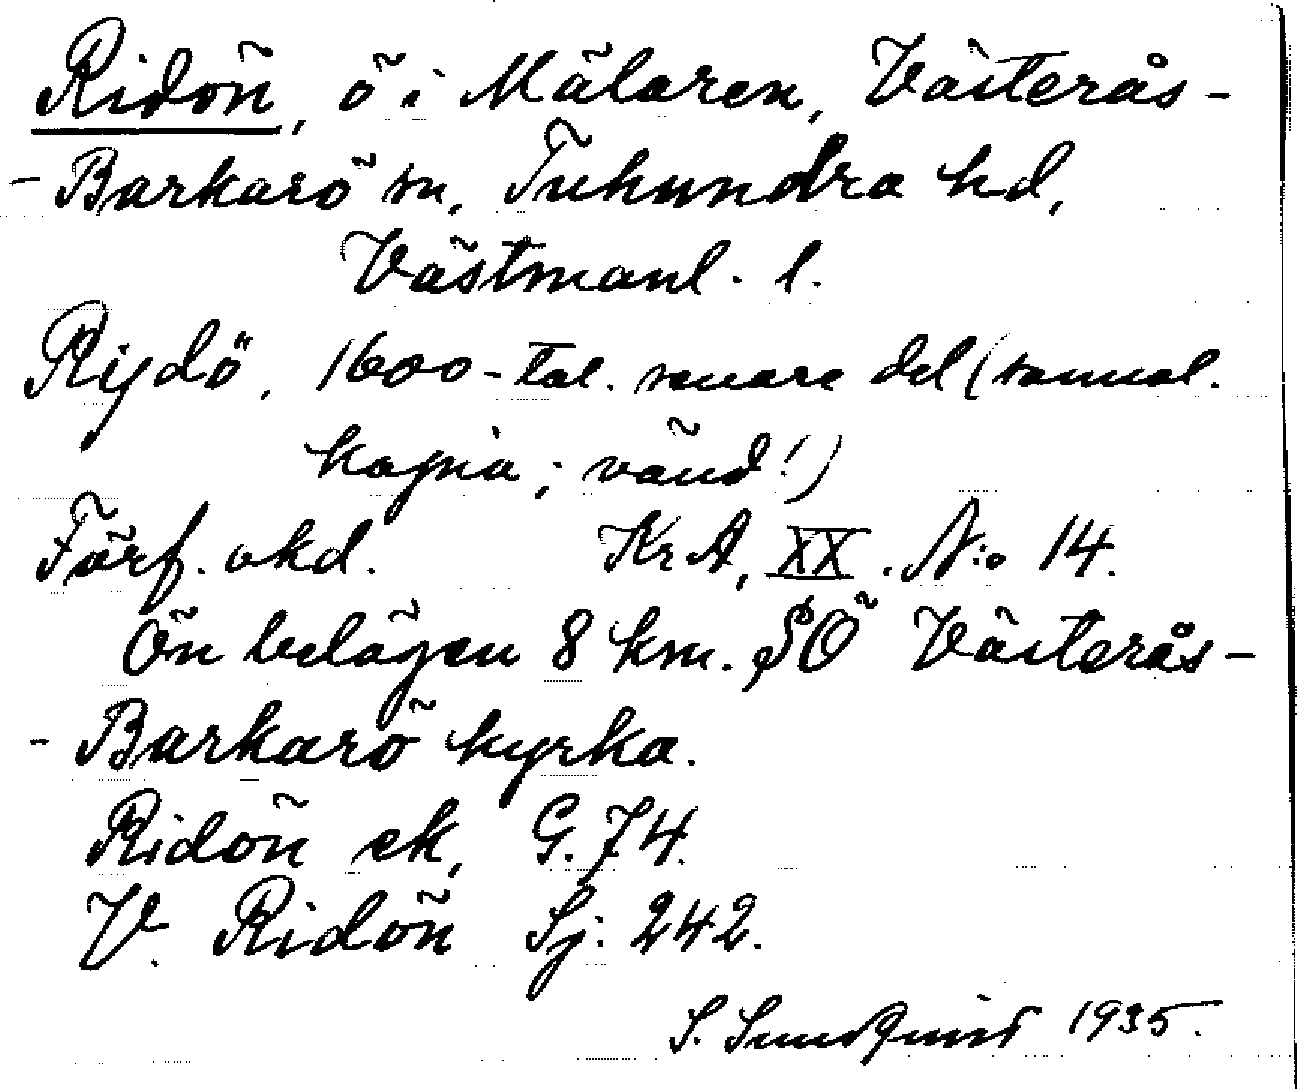 Ridön, ö i Mälaren, Västerås-
-Barkarö sn, Tuhundra hd,
Västmanl. l.
Rijdö, 1600-tal. senare del (samml.
kopia; vänd!)
Förf. okd. KrA, XX. N:o 14.
Ön belägen 8 km. SÖ Västerås-
-Barkarö kyrka.
Ridön ek, G. 74.
V. Ridön Sj. 242.
S. Sundquist 1935.